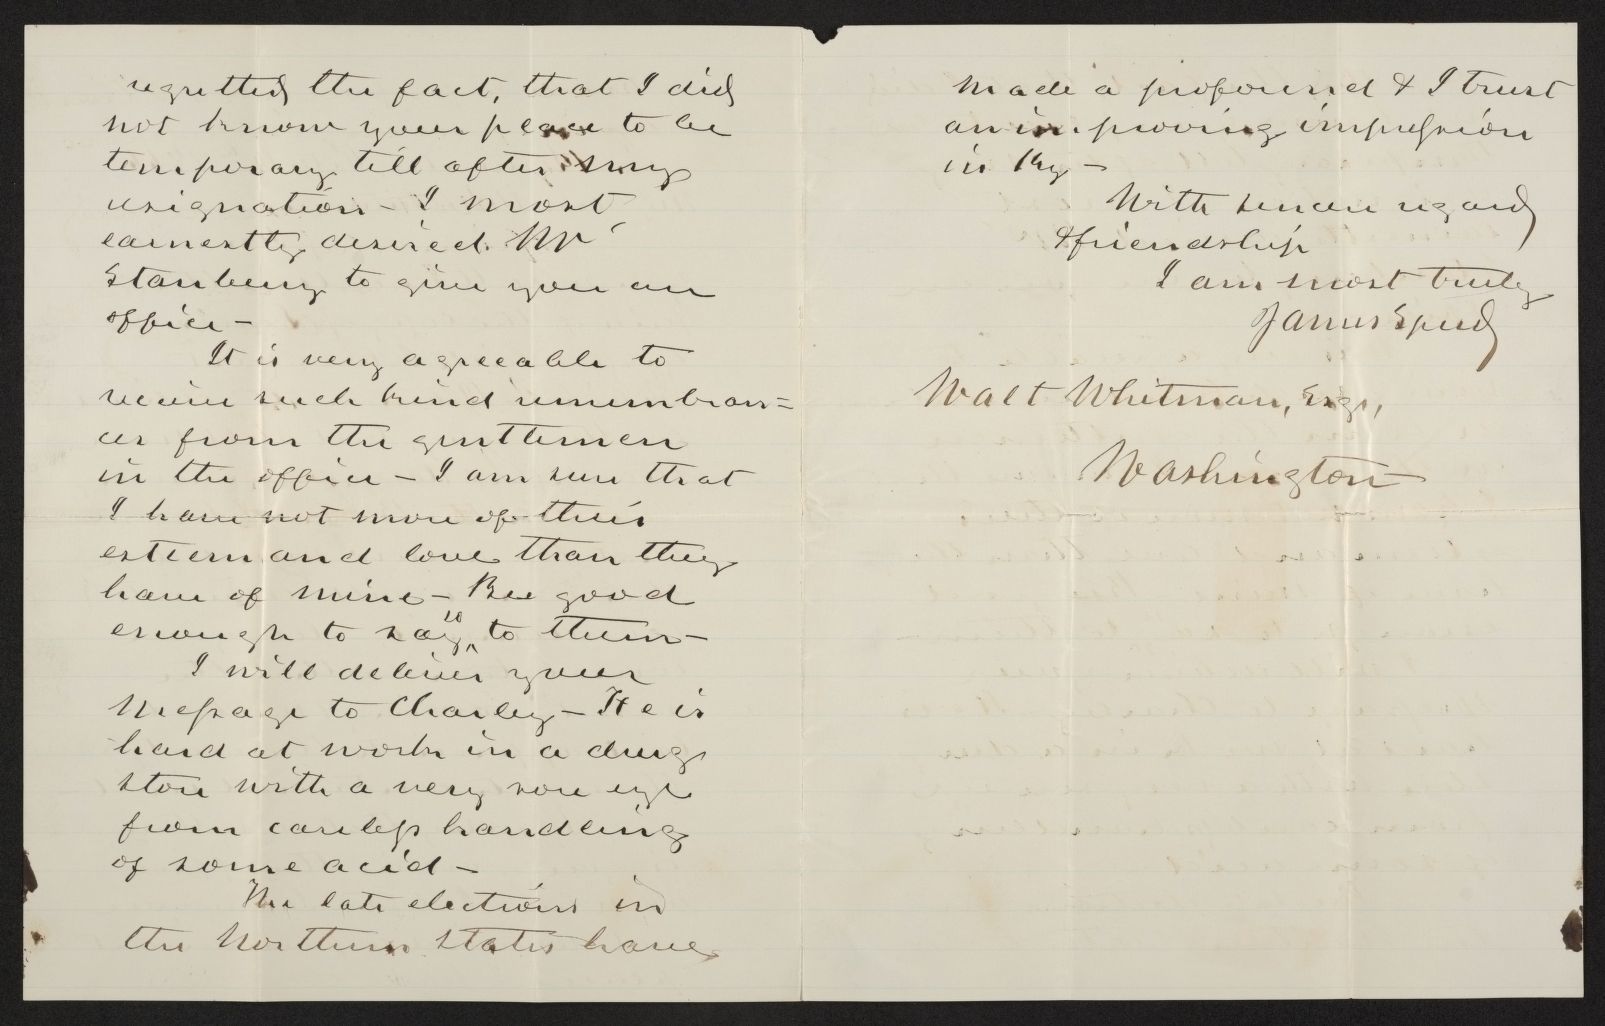 regretted the fact, that I did
not know your place to be
temporary till after my
resignation – I most
earnestly desired Mr
Stanbery to give you an
office –
It is very agreeable to
receive such kind remembran=
ces from the gentlemen
in the office – I am sure that
I have not more of their
esteem and love than they
have of mine – Bee good
enough to say so to them –
I will deliver your
message to Charley – He is
hard at work in a drug
store with a very sore eye
from careless handling
of some acid –
The late elections in
the Northern States have
made a profound & I trust
an improving impression
in Ky –
With sincere regard
& friendship
I am most truly
James Speed
Walt Whitman, Esqr,
Washington